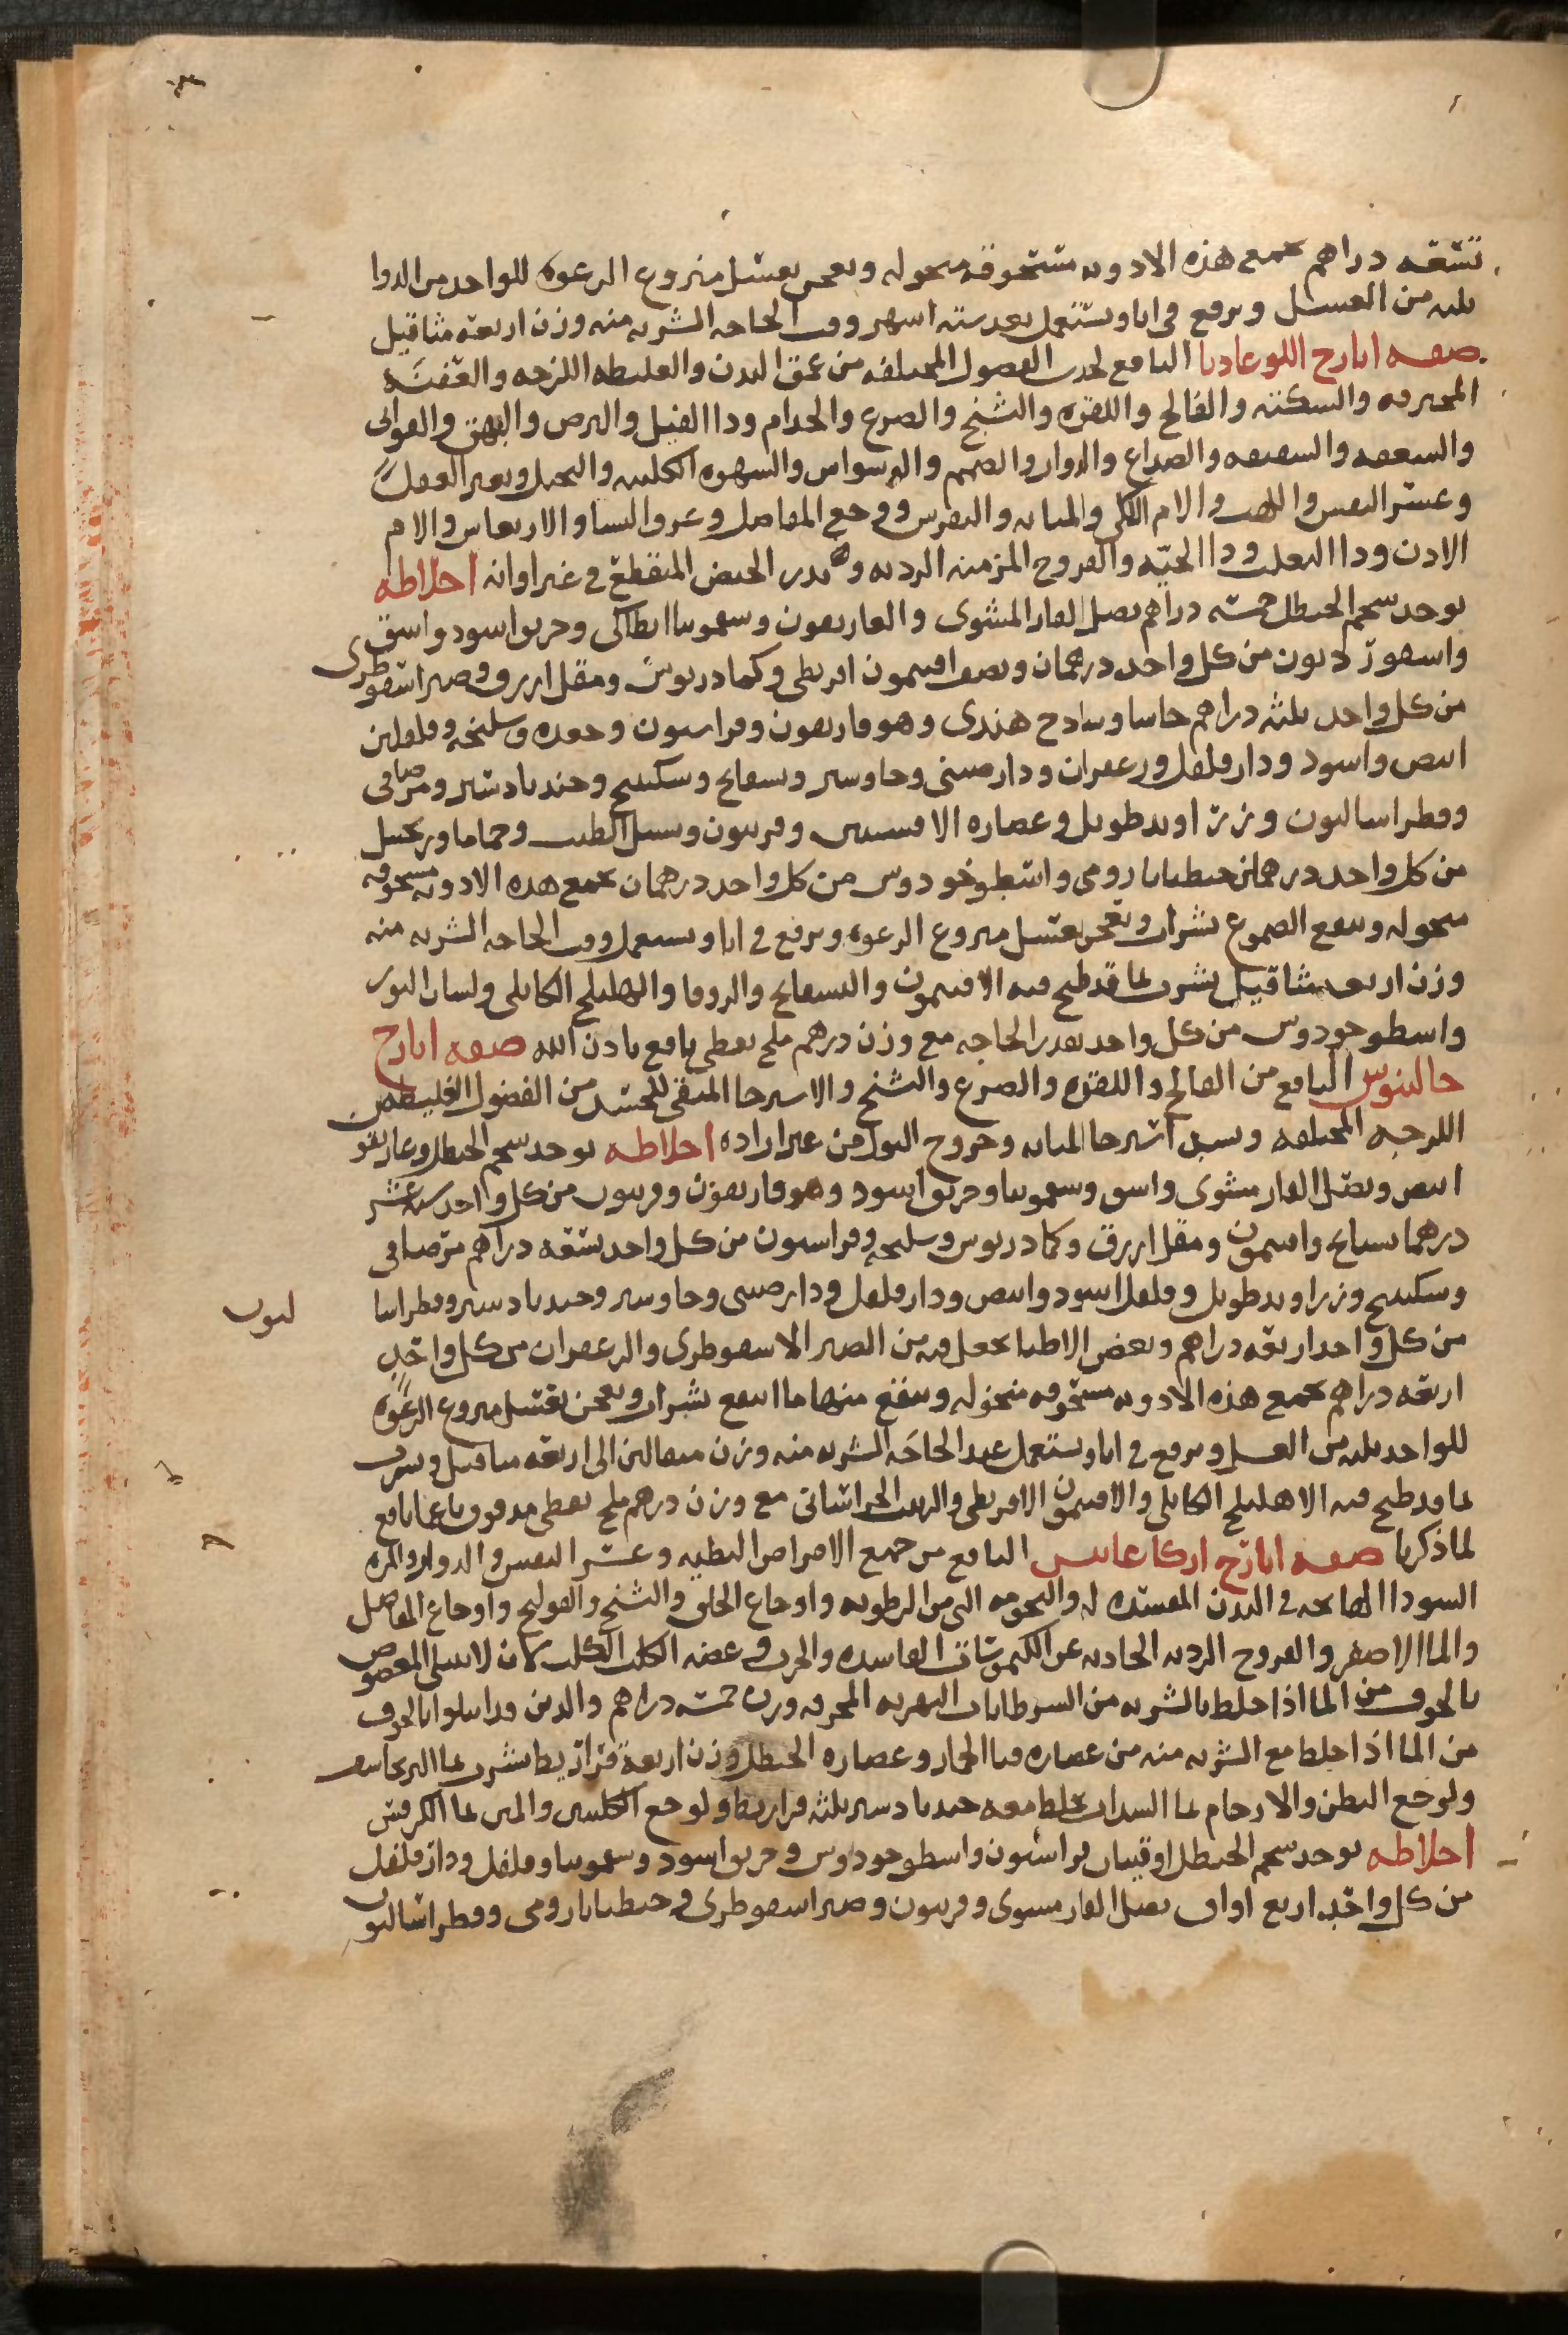 تسعه دراهم تجمع هذه الادويه مسحوقه منخوله وتعجن بعسل منزوع الرغوه للواحد من الدوا
ثلثه من العسل ويرفع في انا ويستعمل بعد سته اشهر وقت الحاجه الشربه منه وزن اربعه مثاقيل
صفه ايارج اللوغاديا النافع لجذب الفضول المختلفه من عمق البدن والغليظه اللزجه والعفنه
المحترقه والسكته والفالج واللقوه والتشنج والصرع والجذام ودا الفيل والبرص والبهق والقوابي
والسعفه والشقيقه والصداع والدوار والصمم والوسواس والشهوه الكلبيه والتخيل وتغير العقل
وعسر النفس والام الكلى والمثانه والنقرس ووجع المفاصل وعرق النسا والارتعاش والام
الاذن ودا الثعلب ودا الحيه والقروح المزمنه الرديه ويدر الحيض المنقطع في غير اوانه اخلاطه
يوخذ شحم الحنظل خمسه دراهم بصل الفار المشوى والغاريقون وسقمونيا انطاكى وخربق اسود واشق
واسقورديون من كل واحد درهمان ونصف افتيمون اقريطى وكمادريوس ومقل ازرق وصبر اسقوطرى
من كل واحد ثلثه دراهم حاشا وساذج هندى وهوفاريقون وفراسيون وجعده وسليخه وفلفلين
ابيض واسود ودارفلفل وزعفران ودارصينى وجاوشير وبسفايج وسكبينج وجندبادستر ومر صافى
وفطراساليون وزراوند طويل وعصاره الافسنتين وفربيون وسنبل الطيب وحماما وزنجبيل
من كل واحد درهمان جنطيانا رومى واسطوخودوس من كل واحد درهمان تجمع هذه الادويه مسحوقه
منخوله وينقع الصموغ بشراب وتعجن بعسل منزوع الرغوه ويرفع في انا ويستعمل وقت الحاجه الشربه منه
وزن اربعه مثاقيل يشرب بما قد طبخ فيه الافتيمون والبسفايج والزوفا والهليلج الكابلى ولسان الثور
واسطوخودوس من كل واحد بقدر الحاجه مع وزن درهم ملح نفطى نافع باذن الله صفه ايارج
جالينوس النافع من الفالج واللقوه والصرع والتشنج والاسترخا المنقى للجسد من الفضول الغليظه
اللزجه المختلفه وسيلان استرخا المثانه وخروج البول من غير اراده اخلاطه يوخذ شحم الحنظل وغاريقون
ابيض وبصل الفار مشوى واشق وسقمونيا وخربق اسود وهوفاريقون وفربيون من كل واحد سته عشر
درهما بسبايج وافتيمون ومقل ازرق وكمادريوس وسليخه وفراسيون من كل واحد تسعه دراهم مر صافى
وسكبينج وزراوند طويل وفلفل اسود وابيض ودارفلفل ودارصينى وجاوشير وجندبادستر وفطراسا
ليون
من كل واحد اربعه دراهم وبعض الاطبا يجعل فيه من الصبر الاسقوطرى والزعفران من كل واحد
اربعه دراهم تجمع هذه الادويه مسحوقه منخوله وينقع منها ما انتقع بشراب وتعجن بعسل منزوع الرغوه
للواحد ثلثه من العسل ويرفع في انا ويستعمل عند الحاجه الشربه منه وزن مثقالين الى اربعه مثاقيل ويشرب
بما قد طبخ فيه الاهليلج الكابلى والافتيمون الاقريطى والزبيب الخراسانى مع وزن درهم ملح نفطى مدقوق ناعما نافع
لما ذكرنا صفه ايارج اركاغانيس النافع من جميع الامراض البطيه وعسر النفس والدوار والمره
السودا الهايجه في البدن المفسده له والبحوحه التى من الرطوبه واوجاع الحلق والتشنج والقولنج واوجاع المفاصل
والما الاصفر والقروح الرديه الحادثه عن الكيموسات الفاسده والجرب وعضه الكلب الكلب لان لا يبتلى المعضوض
بالخوف من الما اذا خلط بالشربه من السرطانات النهريه المحرقه وزن خمسه دراهم والذين قد ابتلوا بالخوف
من الما اذا خلط مع الشربه منه من عصاره قثا الحمار وعصاره الحنظل وزن اربعه قراريط يشرب بما البرنجاسف
ولوجع البطن والارحام بما السداب يخلط معه جندبادستر ثلثه قراريط ولوجع الكليتين والمتن بما الكرفس
اخلاطه يوخذ شحم الحنظل اوقيتان فراسيون واسطوخودوس وخربق اسود وسقمونيا وفلفل ودارفلفل
من كل واحد اربع اواق بصل الفار مشوى وفربيون وصبر اسقوطرى وجنطيانا رومى وفطراساليون